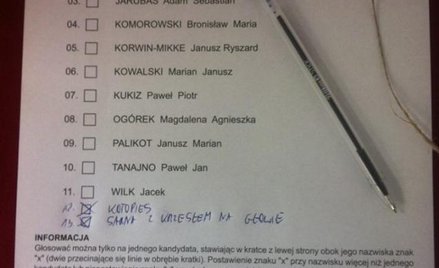 03. JARUBAS Adam Sebastian
04. KOMOROWSKI Bronisław Maria
05. KORWIN-MIKKE Janusz Ryszard
06. KOWALSKI Marian Janusz
07. KUKIZ Paweł Piotr
08. OGÓREK Magdalena Agnieszka
09. PALIKOT Janusz Marian
10. TANAJNO Paweł Jan
11. WILK Jacek
12. KOTOPIES
13. SARNA Z KRZESŁEM NA GŁOWIE
INFORMACJA
Głosować można tylko na jednego kandydata, stawiając w kratce z lewej strony obok jego nazwiska znak
"x" (dwie przecinające się linie w obrębie kratki). Postawienie znaku "x" przy nazwisku więcej niż jednego